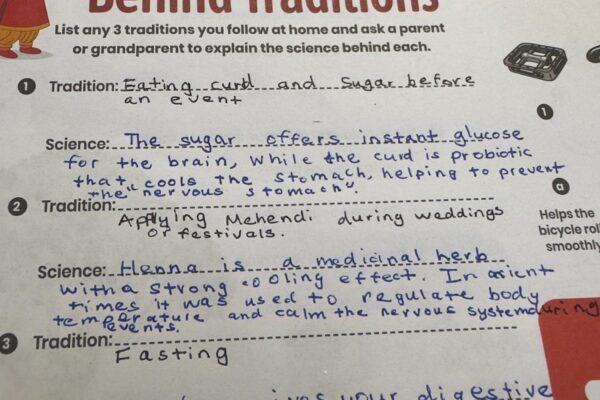 Behind Traditions
List any 3 traditions you follow at home and ask a parent
or grandparent to explain the science behind each.
1 Tradition: Eating curd and sugar before
an event
Science: The sugar offers instant glucose
for the brain, while the curd is probiotic
that "cools" the stomach, helping to prevent
the "nervous stomach".
2 Tradition:
Applying Mehendi during weddings
or festivals.
Science: Henna is a medicinal herb
with a strong cooling effect. In acient
times it was used to regulate body
temperature and calm the nervous system during
events.
3 Tradition:
Fasting
your digestive
1
a
Helps the
bicycle rol
smoothly